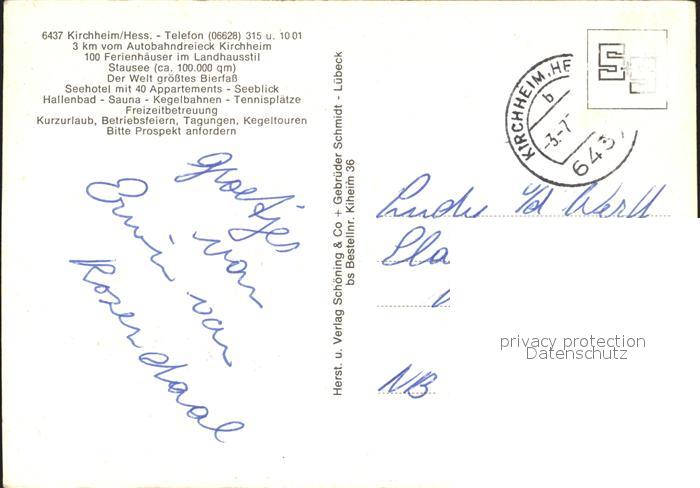 6437 Kirchheim/Hess. - Telefon (06628) 315 u. 1001
3 km vom Autobahndreieck Kirchheim
100 Ferienhäuser im Landhausstil
Stausee (ca. 100.000 qm)
Der Welt größtes Bierfaß
Seehotel mit 40 Appartements - Seeblick
Hallenbad - Sauna - Kegelbahnen - Tennisplätze
Freizeitbetreuung
Kurzurlaub, Betriebsfeiern, Tagungen, Kegeltouren
Bitte Prospekt anfordern
Groetjes
van
Erwin van
Rosendaal
Herst. u. Verlag Schöning & Co + Gebrüder Schmidt - Lübeck
bs Bestellnr. Kiheim 36
KIRCHHEIM, HE
b
-3.-7
643
v/d Werll
Ela
NB
privacy protection
Datenschutz